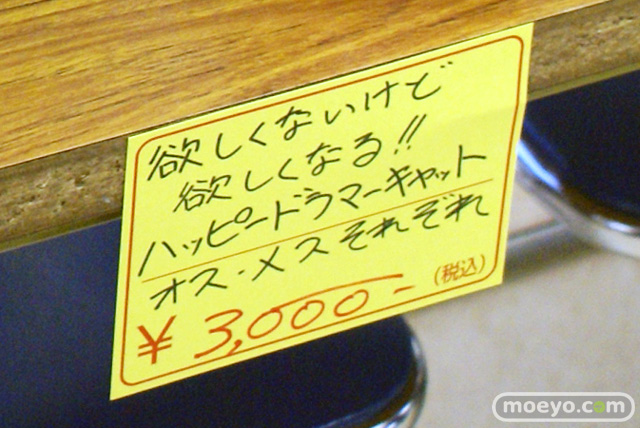 欲しくないけど
欲しくなる!!
ハッピードラマーキャット
オス・メスそれぞれ
¥3,000-(税込)
moeyo.com